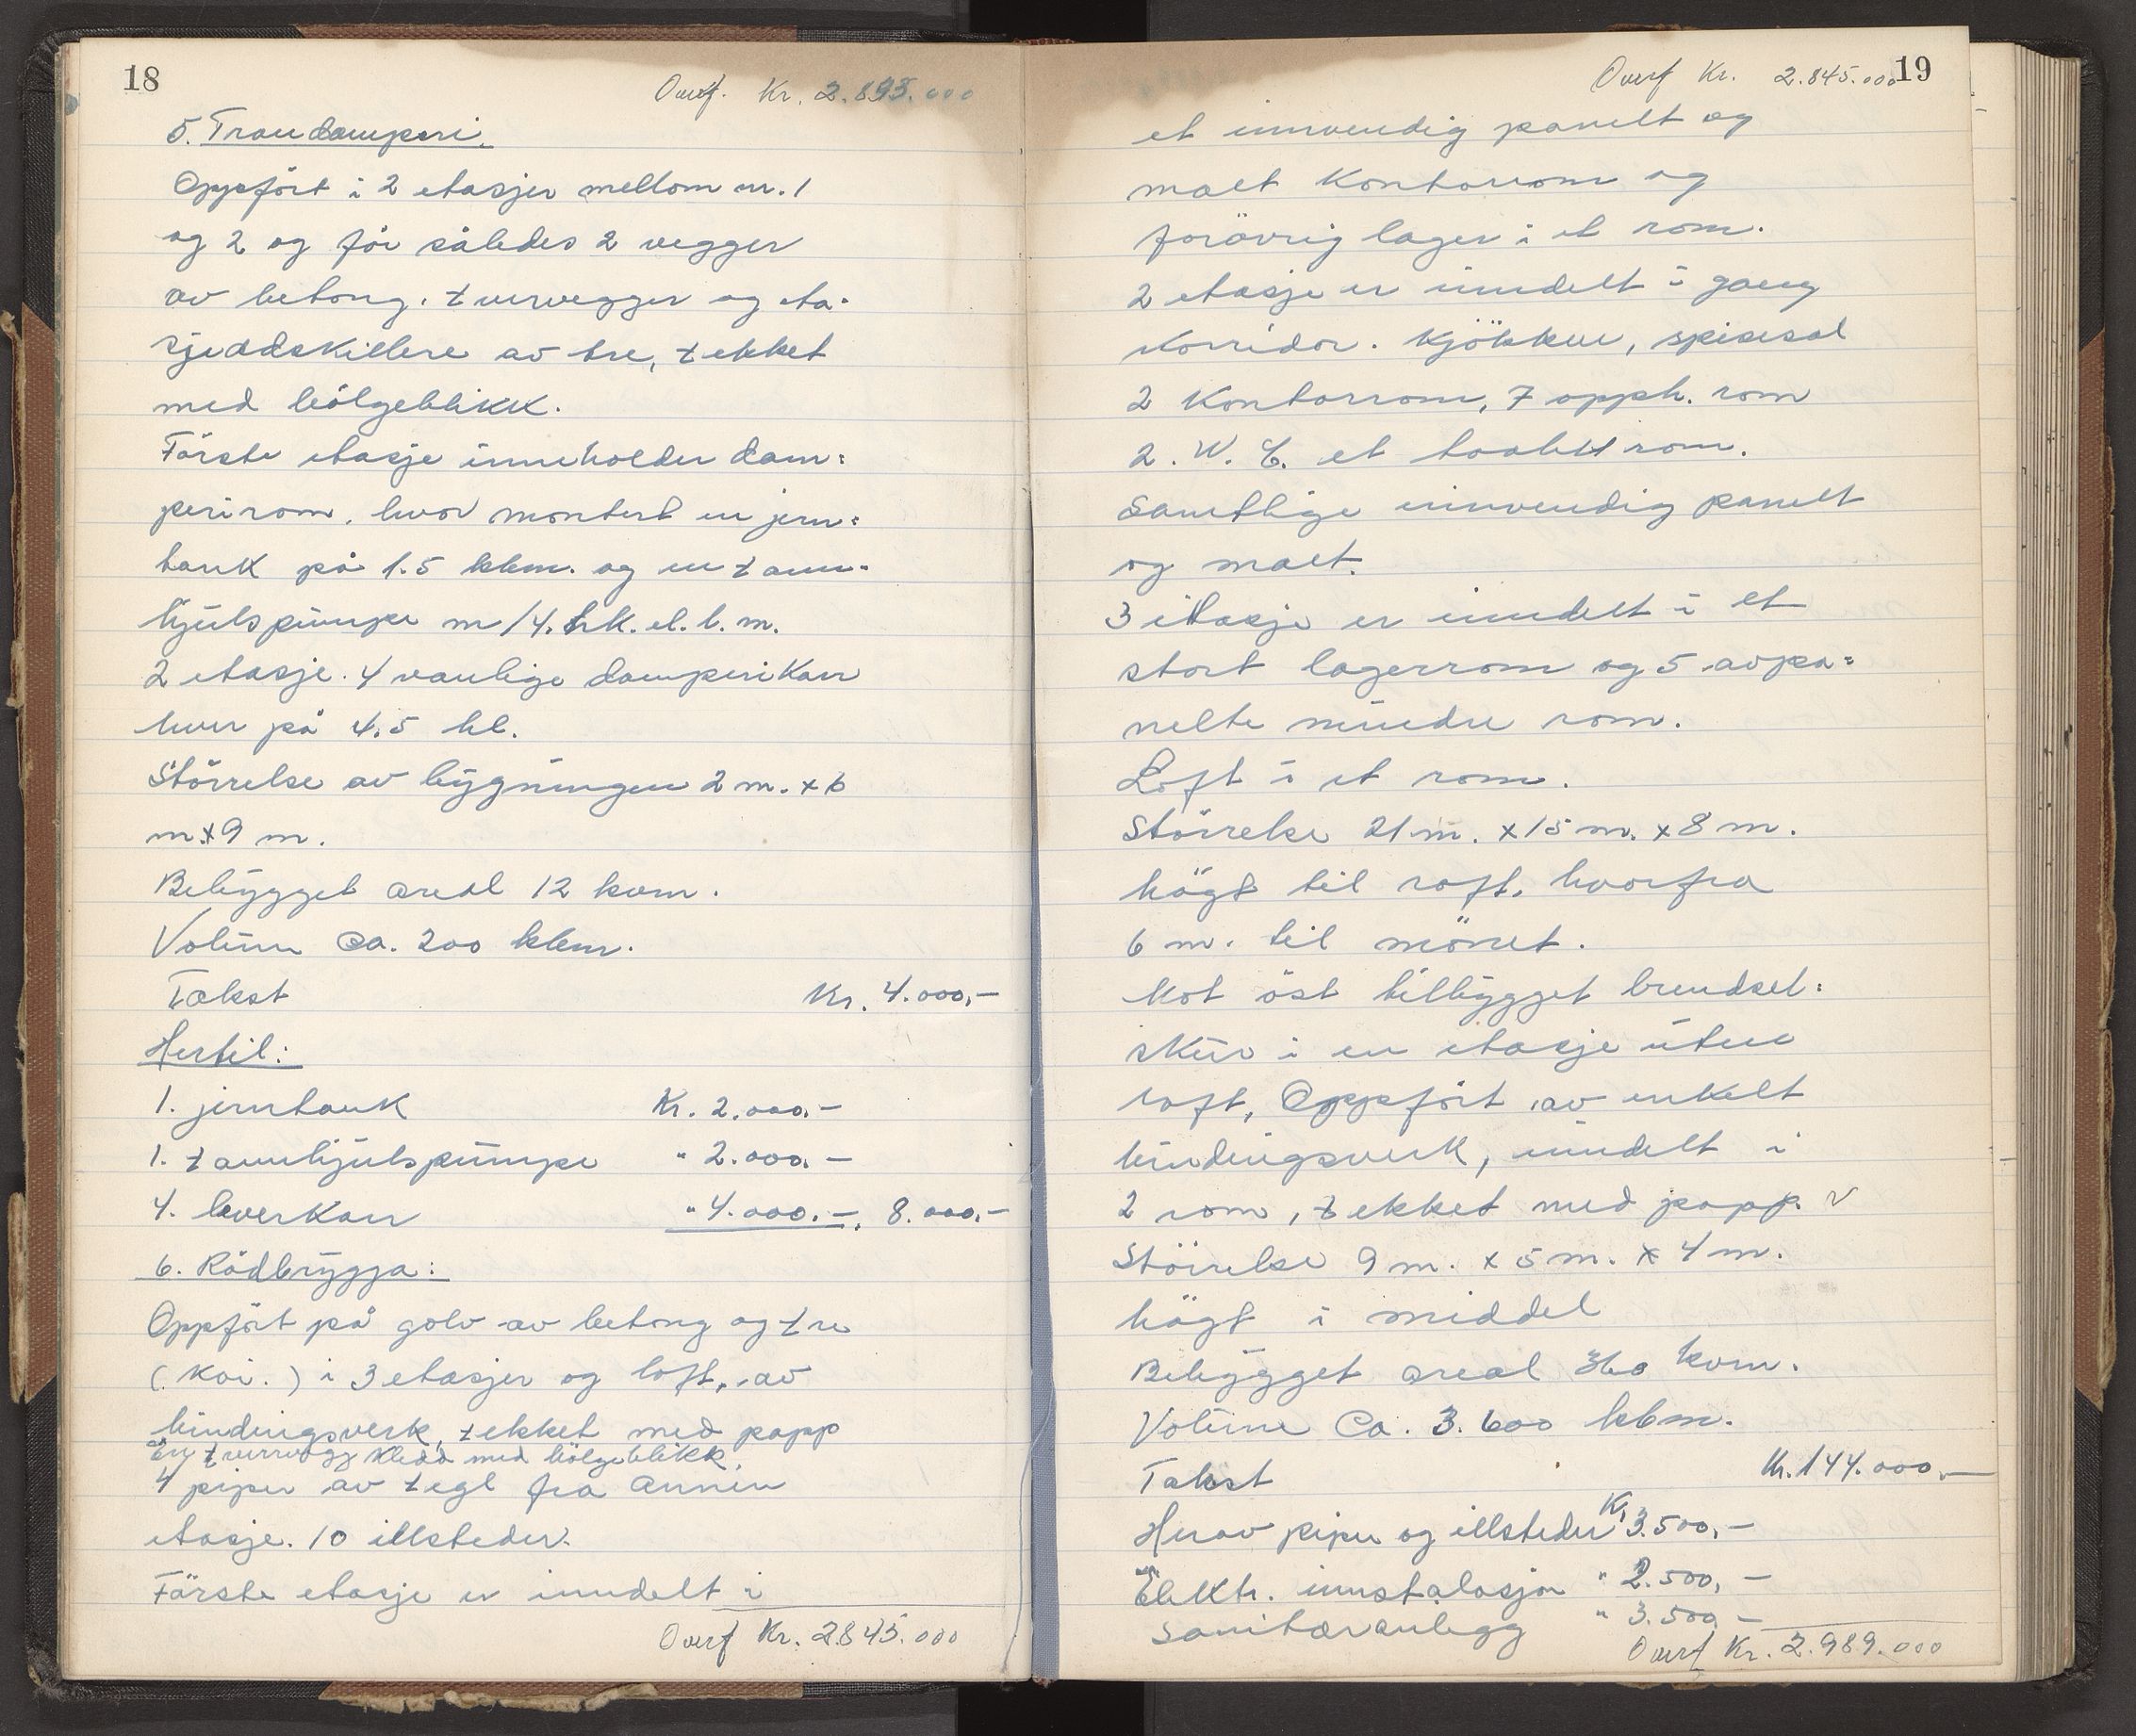 18
Overf. Kr. 2.893.000
5. Trandamperi.
Oppført i 2 etasjer mellom nr. 1
og 2 og får således 2 vegger
av betong. tverrvegger og eta=
sjeadskillere av tre, tekket
med bölgeblikk.
Förste etasje inneholder dam=
perirom, hvor montert en jern=
tank på 1.5 kbm. og en tann=
hjulspumpe m/4. hk. el. b. m.
2 etasje. 4 vanlige damperikar
hver på 4,5 hl.
Störrelse av bygningen 2 m. x 6
m x 9 m.
Bebygget areal 12 kvm.
Volum ca. 200 kbm.
Takst Kr. 4.000,-
Hertil:
1. jerntank Kr. 2.000,-
1. tannhjulspumpe " 2.000.-
4. leverkar " 4.000.-, 8.000,-
6. Rödbrygga:
Oppfört på golv av betong og tre
(Kai.) i 3 etasjer og loft, av
bindingsverk, tekket med papp
En tverrvegg kledd med bölgeblikk.
4 piper av tegl fra annen
etasje. 10 illsteder.
Förste etasje er inndelt i
Overf Kr. 2.845.000
Overf Kr. 2.845.000 19
et innvendig panelt og
malt Kontorrom og
forövrig lager i et rom.
2 etasje er inndelt i gang
korridor. Kjökken, spisesal
2 Kontorrom, 7 opph. rom
2. W. C. et toalettrom.
Samtlige innvendig panelt
og malt.
3 etasje er inndelt i et
stort lagerrom og 5 avpa=
nelte mindre rom.
Loft i et rom.
Störrelse 21 m. x 15 m. x 8 m.
högt til raft, hvorfra
6 m. til mönet.
Mot öst tilbygget brendsel=
skur i en etasje uten
loft, Oppfört av enkelt
bindingsverk, inndelt i
2 rom, tekket med papp.
Störrelse 9 m. x 5 m. x 4 m.
högt i middel
Bebygget areal 360 kvm.
Volume Ca. 3.600 kbm.
Takst Kr. 144.000,-
Herav piper og illsteder Kr 3.500,-
Elektr. innstalasjon " 2.500,-
Sanitæranlegg " 3.500,-
Overf Kr. 2.989.000